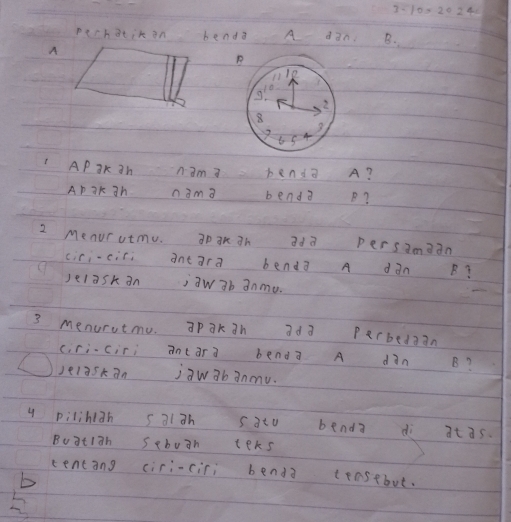 3-10-2024
Perhatikan benda A dan. B.
A B
11 12
10
9 2
8 3
7 6 5 4
1 Apakah nama benda A?
Apakah nama benda B?
2 Menurutmu. apakah ada persamaan
ciri-ciri antara benda A dan B?
jelaskan jawabanmu.
3 Menurutmu. apakah ada perbedaan
ciri-ciri antara benda A dan B?
jelaskan jawabanmu.
4 Pilihlah salah satu benda di atas.
Buatlah sebuah teks
tentang ciri-ciri benda tersebut.
b